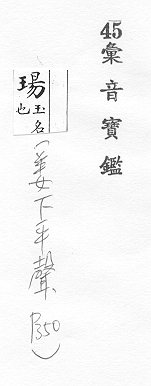 45彙音寶鑑
瑒玉名
也
(姜女下平聲
P350)